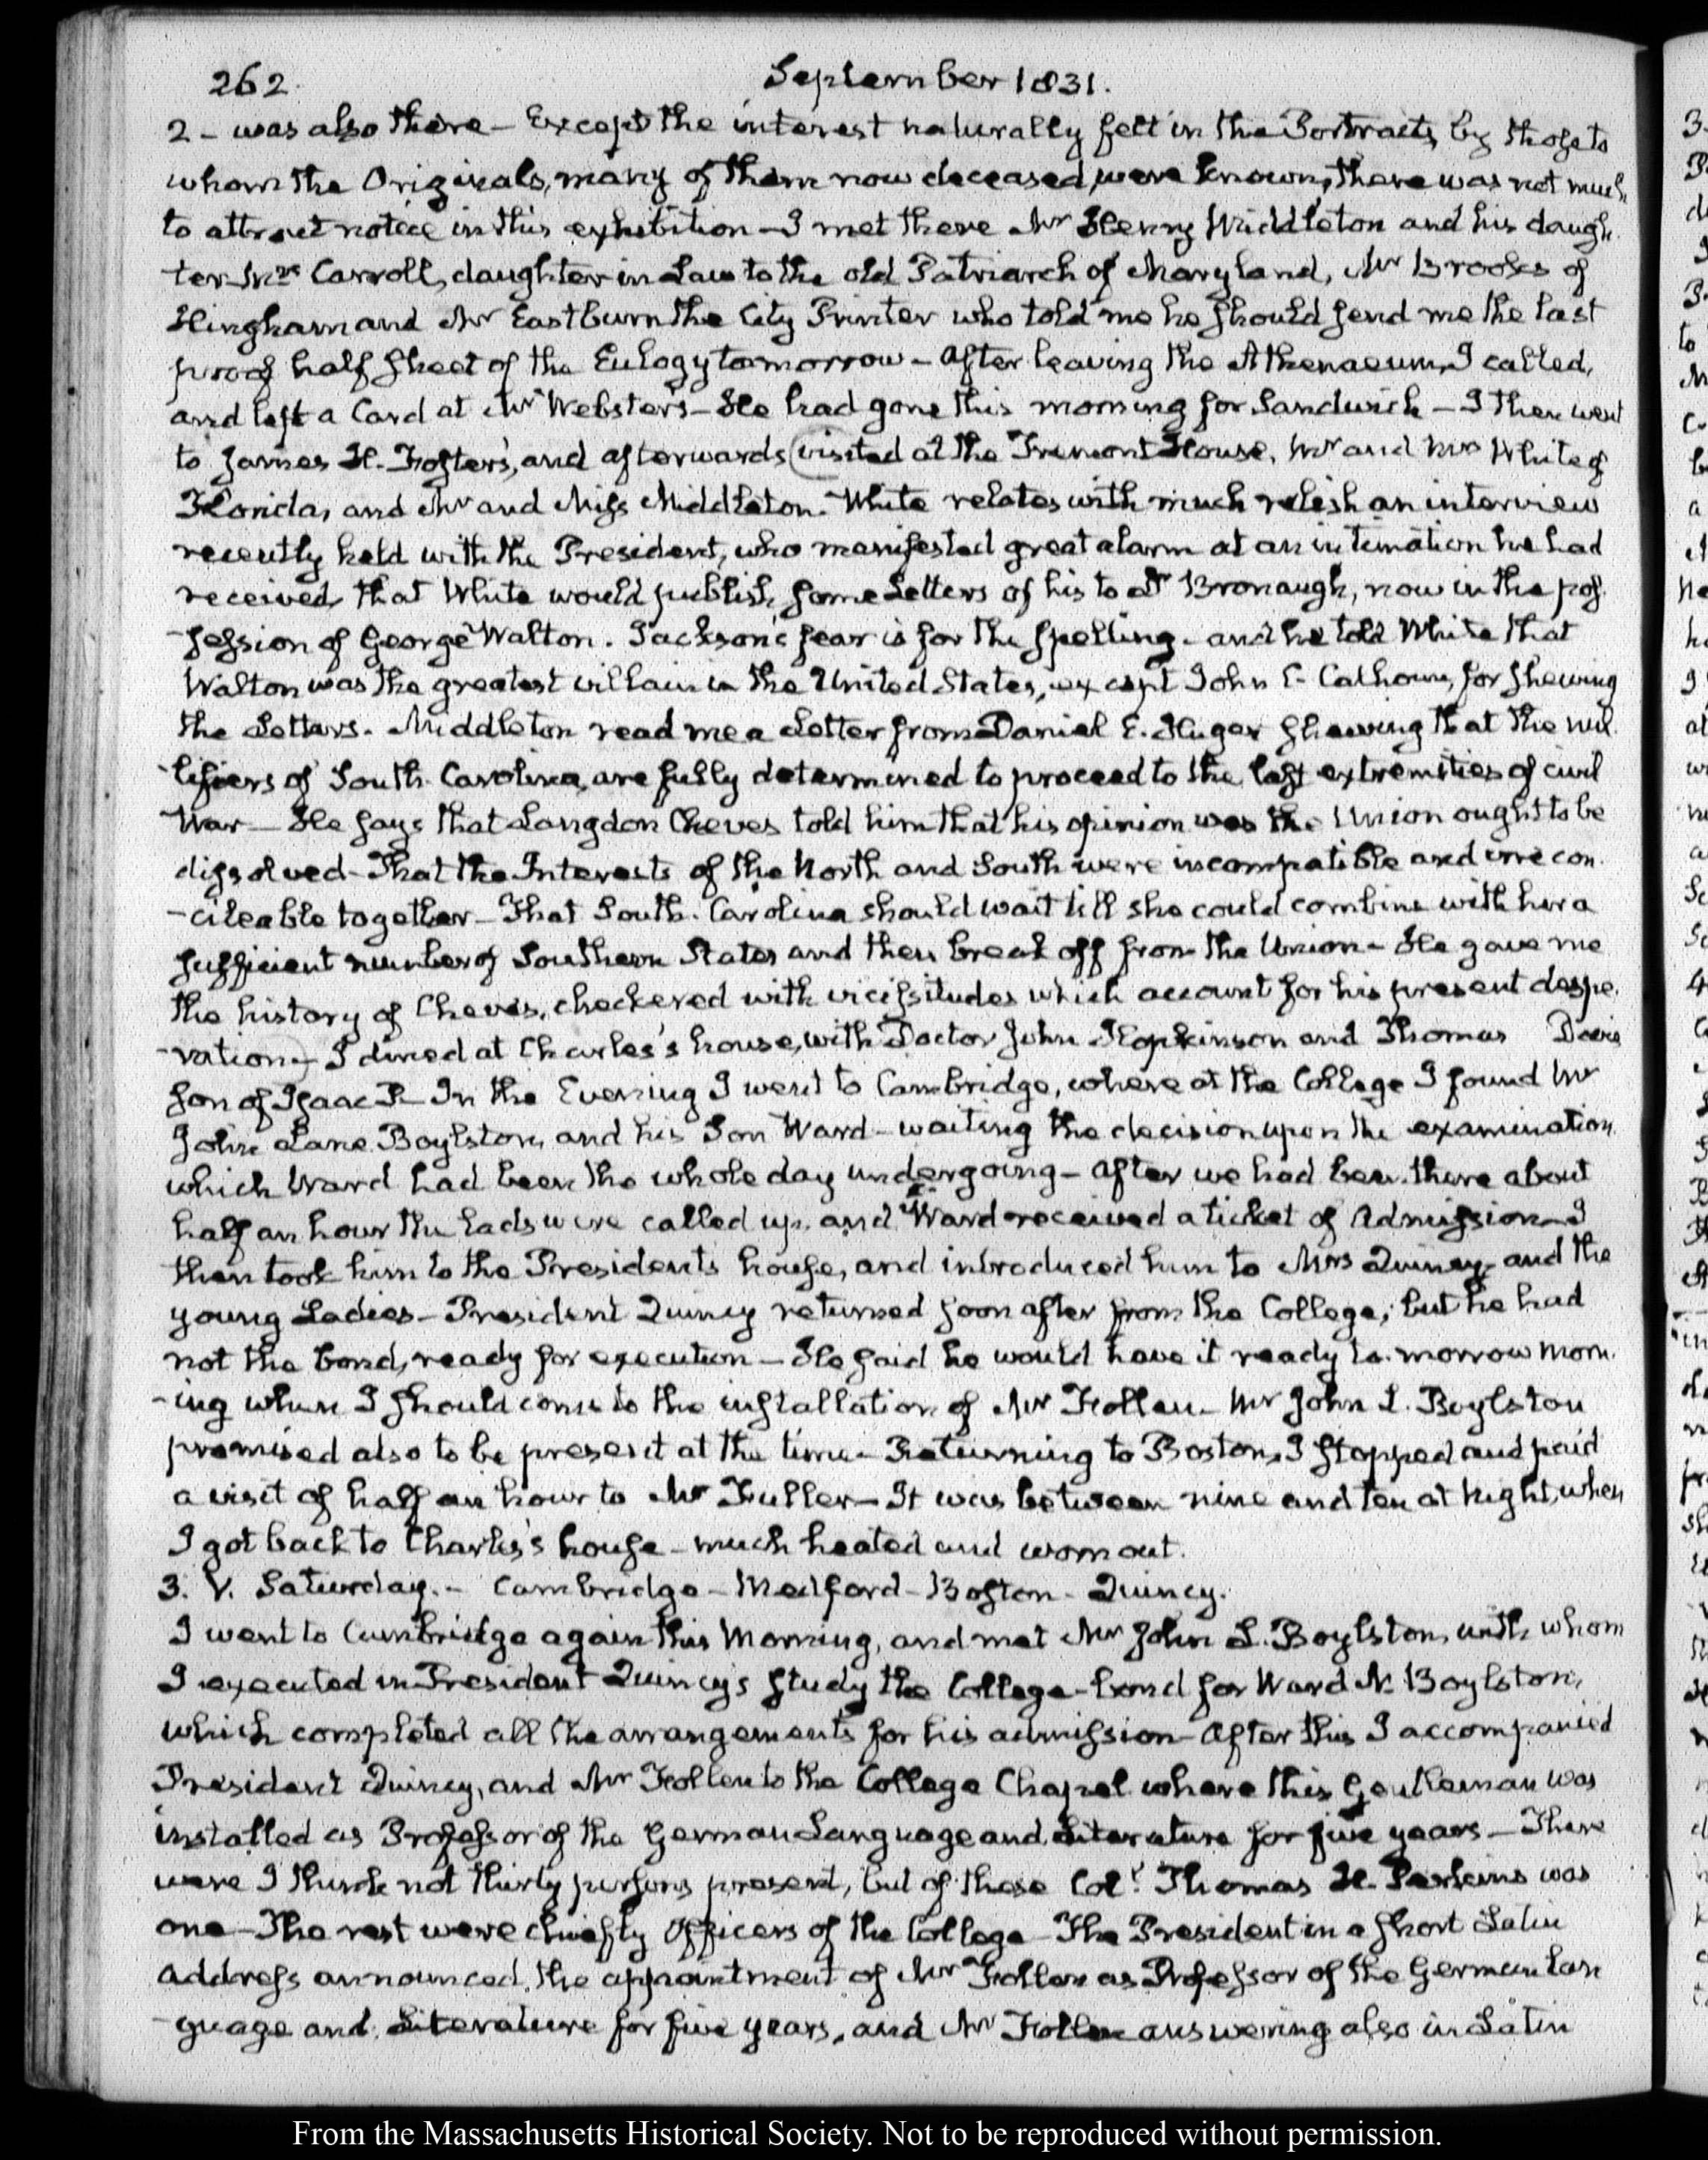 262. September 1831.
2 - was also there - Except the interest naturally felt in the Portraits, by those to
whom the Originals, many of them now deceased, were known, there was not much
to attract notice in this exhibition - I met there Mr Henry Middleton and his daugh-
ter Mrs Carroll, daughter in Law to the old Patriarch of Maryland, Mr Brooks of
Hingham and Mr Eastburn the City Printer who told me he should send me the last
proof half sheet of the Eulogy tomorrow - After leaving the Athenaeum, I called,
and left a Card at Mr Webster's - He had gone this morning for Sandwich - I then went
to James H. Foster's, and afterwards visited at the Tremont House, Mr and Mrs White of
Florida, and Mr and Miss Middleton. White relates with much relish an interview
recently held with the President, who manifested great alarm at an intimation he had
received that White would publish some Letters of his to Dr Bronaugh, now in the pos-
-session of George Walton. Jackson's fear is for the spelling - and he told White that
Walton was the greatest villain in the United States, except John C. Calhoun, for shewing
the Letters. Middleton read me a Letter from Daniel E. Huger shewing that the nul-
-lifiers of South-Carolina, are fully determined to proceed to the last extremities of civil
War - He says that Langdon Cheves told him that his opinion was the Union ought to be
dissolved - That the Interests of the North and South were incompatible and irrecon-
-cileable together - That South-Carolina should wait till she could combine with her a
sufficient number of Southern States and then break off from the Union - He gave me
the history of Cheves, checkered with vicissitudes which account for his present despe-
-ration - I dined at Charles's house, with Doctor John Hopkinson and Thomas Davis
son of Isaac P - In the Evening I went to Cambridge, where at the College I found Mr
John Lane Boylston, and his Son Ward - waiting the decision upon the examination
which Ward had been the whole day undergoing - After we had been there about
half an hour the Lads were called up, and Ward received a ticket of Admission - I
then took him to the President's house, and introduced him to Mrs Quincy and the
young Ladies - President Quincy returned soon after from the College; but he had
not the bond, ready for execution - He said he would have it ready to-morrow morn-
-ing when I should come to the installation of Mr Follen - Mr John L. Boylston
promised also to be present at the time - Returning to Boston, I stopped and paid
a visit of half an hour to Mr Fuller - It was between nine and ten at Night, when
I got back to Charles's house - much heated and worn out.
3. V. Saturday. - Cambridge - Medford - Boston - Quincy.
I went to Cambridge again this Morning, and met Mr John L. Boylston, with whom
I executed in President Quincy's study the College-bond for Ward N. Boylston,
which completed all the arrangements for his admission - After this I accompanied
President Quincy, and Mr Follen to the College Chapel where this Gentleman was
installed as Professor of the German Language and Literature for five years - There
were I think not thirty persons present, but of these Coll. Thomas H. Perkins was
one - The rest were chiefly Officers of the College - The President in a short Latin
Address announced the appointment of Mr Follen as Professor of the German Lan
-guage and Literature for five years, and Mr Follen answering also in Latin
From the Massachusetts Historical Society. Not to be reproduced without permission.